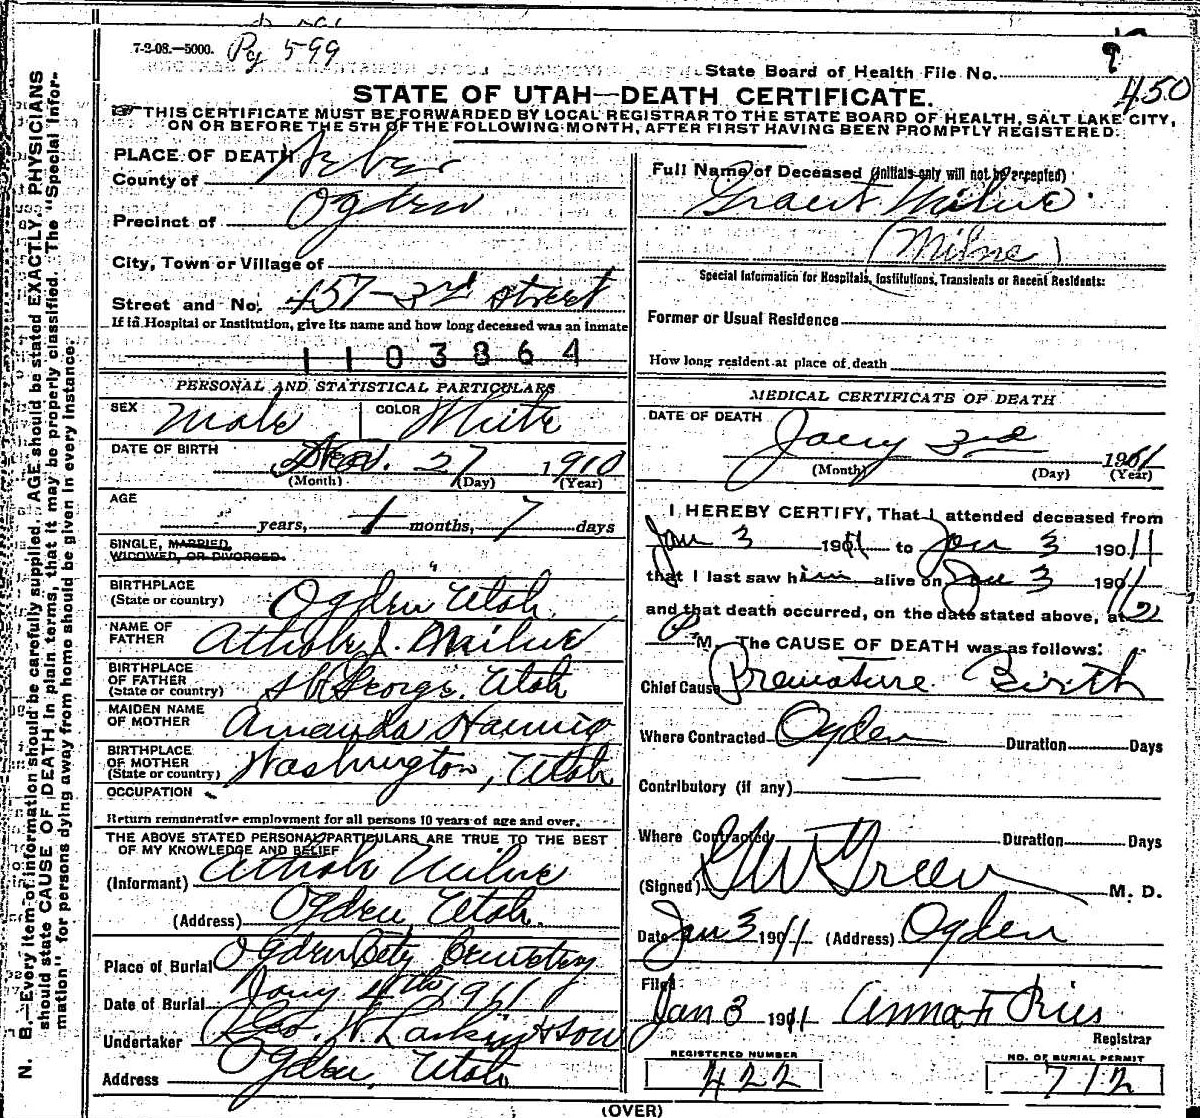 7-2-08.—5000. Pg 599
State Board of Health File No. 9
450
STATE OF UTAH—DEATH CERTIFICATE.
THIS CERTIFICATE MUST BE FORWARDED BY LOCAL REGISTRAR TO THE STATE BOARD OF HEALTH, SALT LAKE CITY,
ON OR BEFORE THE 5TH OF THE FOLLOWING MONTH, AFTER FIRST HAVING BEEN PROMPTLY REGISTERED.
N. B.—Every item of information should be carefully supplied. AGE should be stated EXACTLY. PHYSICIANS
should state CAUSE OF DEATH in plain terms, that it may be properly classified. The "Special Infor-
mation" for persons dying away from home should be given in every instance.
PLACE OF DEATH
County of Weber
Precinct of Ogden
City, Town or Village of
Street and No. 457-3rd street
If in Hospital or Institution, give its name and how long deceased was an inmate
1103864
PERSONAL AND STATISTICAL PARTICULARS
SEX Male COLOR White
DATE OF BIRTH Nov. 27 1910
(Month) (Day) (Year)
AGE
years, 1 months, 7 days
SINGLE, MARRIED,
WIDOWED, OR DIVORCED.
BIRTHPLACE
(State or country) Ogden Utah.
NAME OF
FATHER Athole J. Milne
BIRTHPLACE
OF FATHER
(State or country) St George, Utah
MAIDEN NAME
OF MOTHER Amanda Hannig
BIRTHPLACE
OF MOTHER
(State or country) Washington, Utah
OCCUPATION
Return remunerative employment for all persons 10 years of age and over.
THE ABOVE STATED PERSONAL PARTICULARS ARE TRUE TO THE BEST
OF MY KNOWLEDGE AND BELIEF
(Informant) Athole Milne
(Address) Ogden Utah.
Place of Burial Ogden City Cemetery
Date of Burial Jany 4th 1911
Undertaker Geo. W. Larkin & Son
Address Ogden, Utah
Full Name of Deceased (Initials only will not be accepted)
Grant Milne
(Milne)
Special Information for Hospitals, Institutions, Transients or Recent Residents:
Former or Usual Residence
How long resident at place of death
MEDICAL CERTIFICATE OF DEATH
DATE OF DEATH
Jany 3rd 1911
(Month) (Day) (Year)
I HEREBY CERTIFY, That I attended deceased from
Jan 3 1911 to Jan 3 1911
that I last saw him alive on Jan 3 1911
and that death occurred, on the date stated above, at 2
P M. The CAUSE OF DEATH was as follows:
Chief Cause Premature Birth
Where Contracted Ogden Duration Days
Contributory (if any) —
Where Contracted Duration Days
(Signed) G W Green M. D.
Date Jan 3 1911 (Address) Ogden
Filed
Jan 3 1911 Anna F Ries
Registrar
REGISTERED NUMBER
422
NO. OF BURIAL PERMIT
712
(OVER)